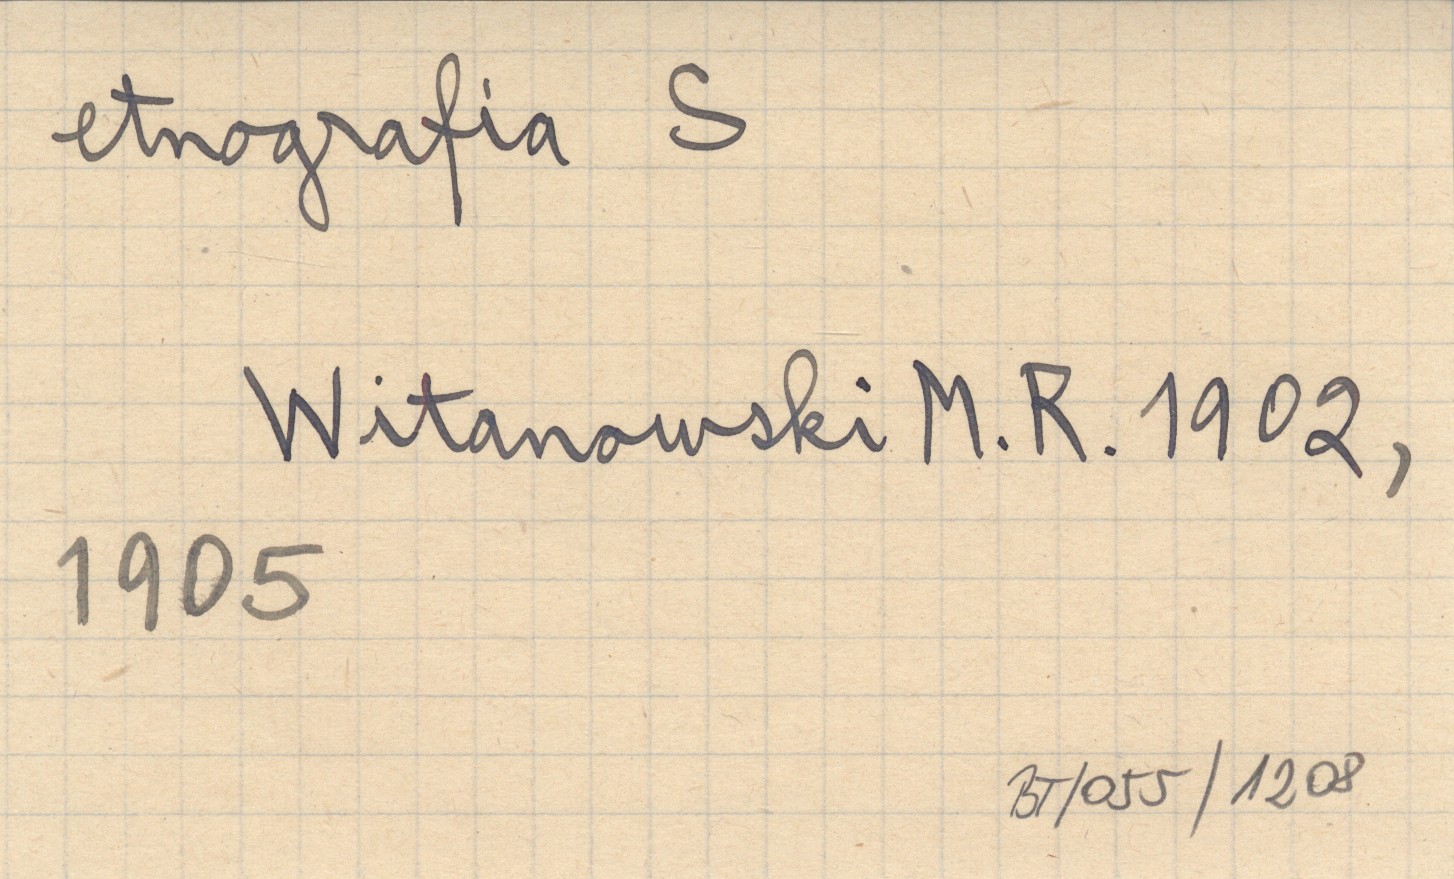 etnografia S
Witanowski M.R. 1902,
1905
BT/055/1208